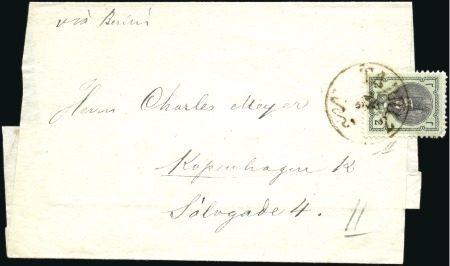 via Berlin
Herrn Charles Meyer
Kopenhagen K
Sölvgade 4.